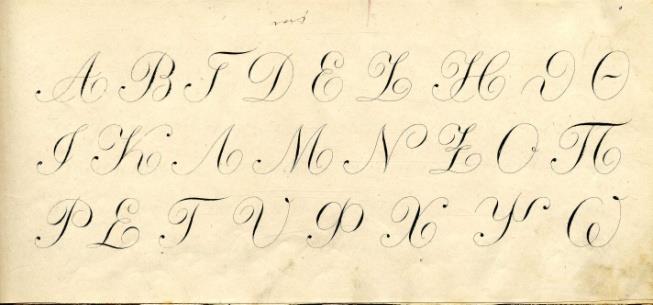 Α Β Γ Δ Ε Ζ Η ϑ Θ
Ι Κ Λ Μ Ν Ξ Ο Π
Ρ Σ Τ Υ Φ Χ Ψ Ω